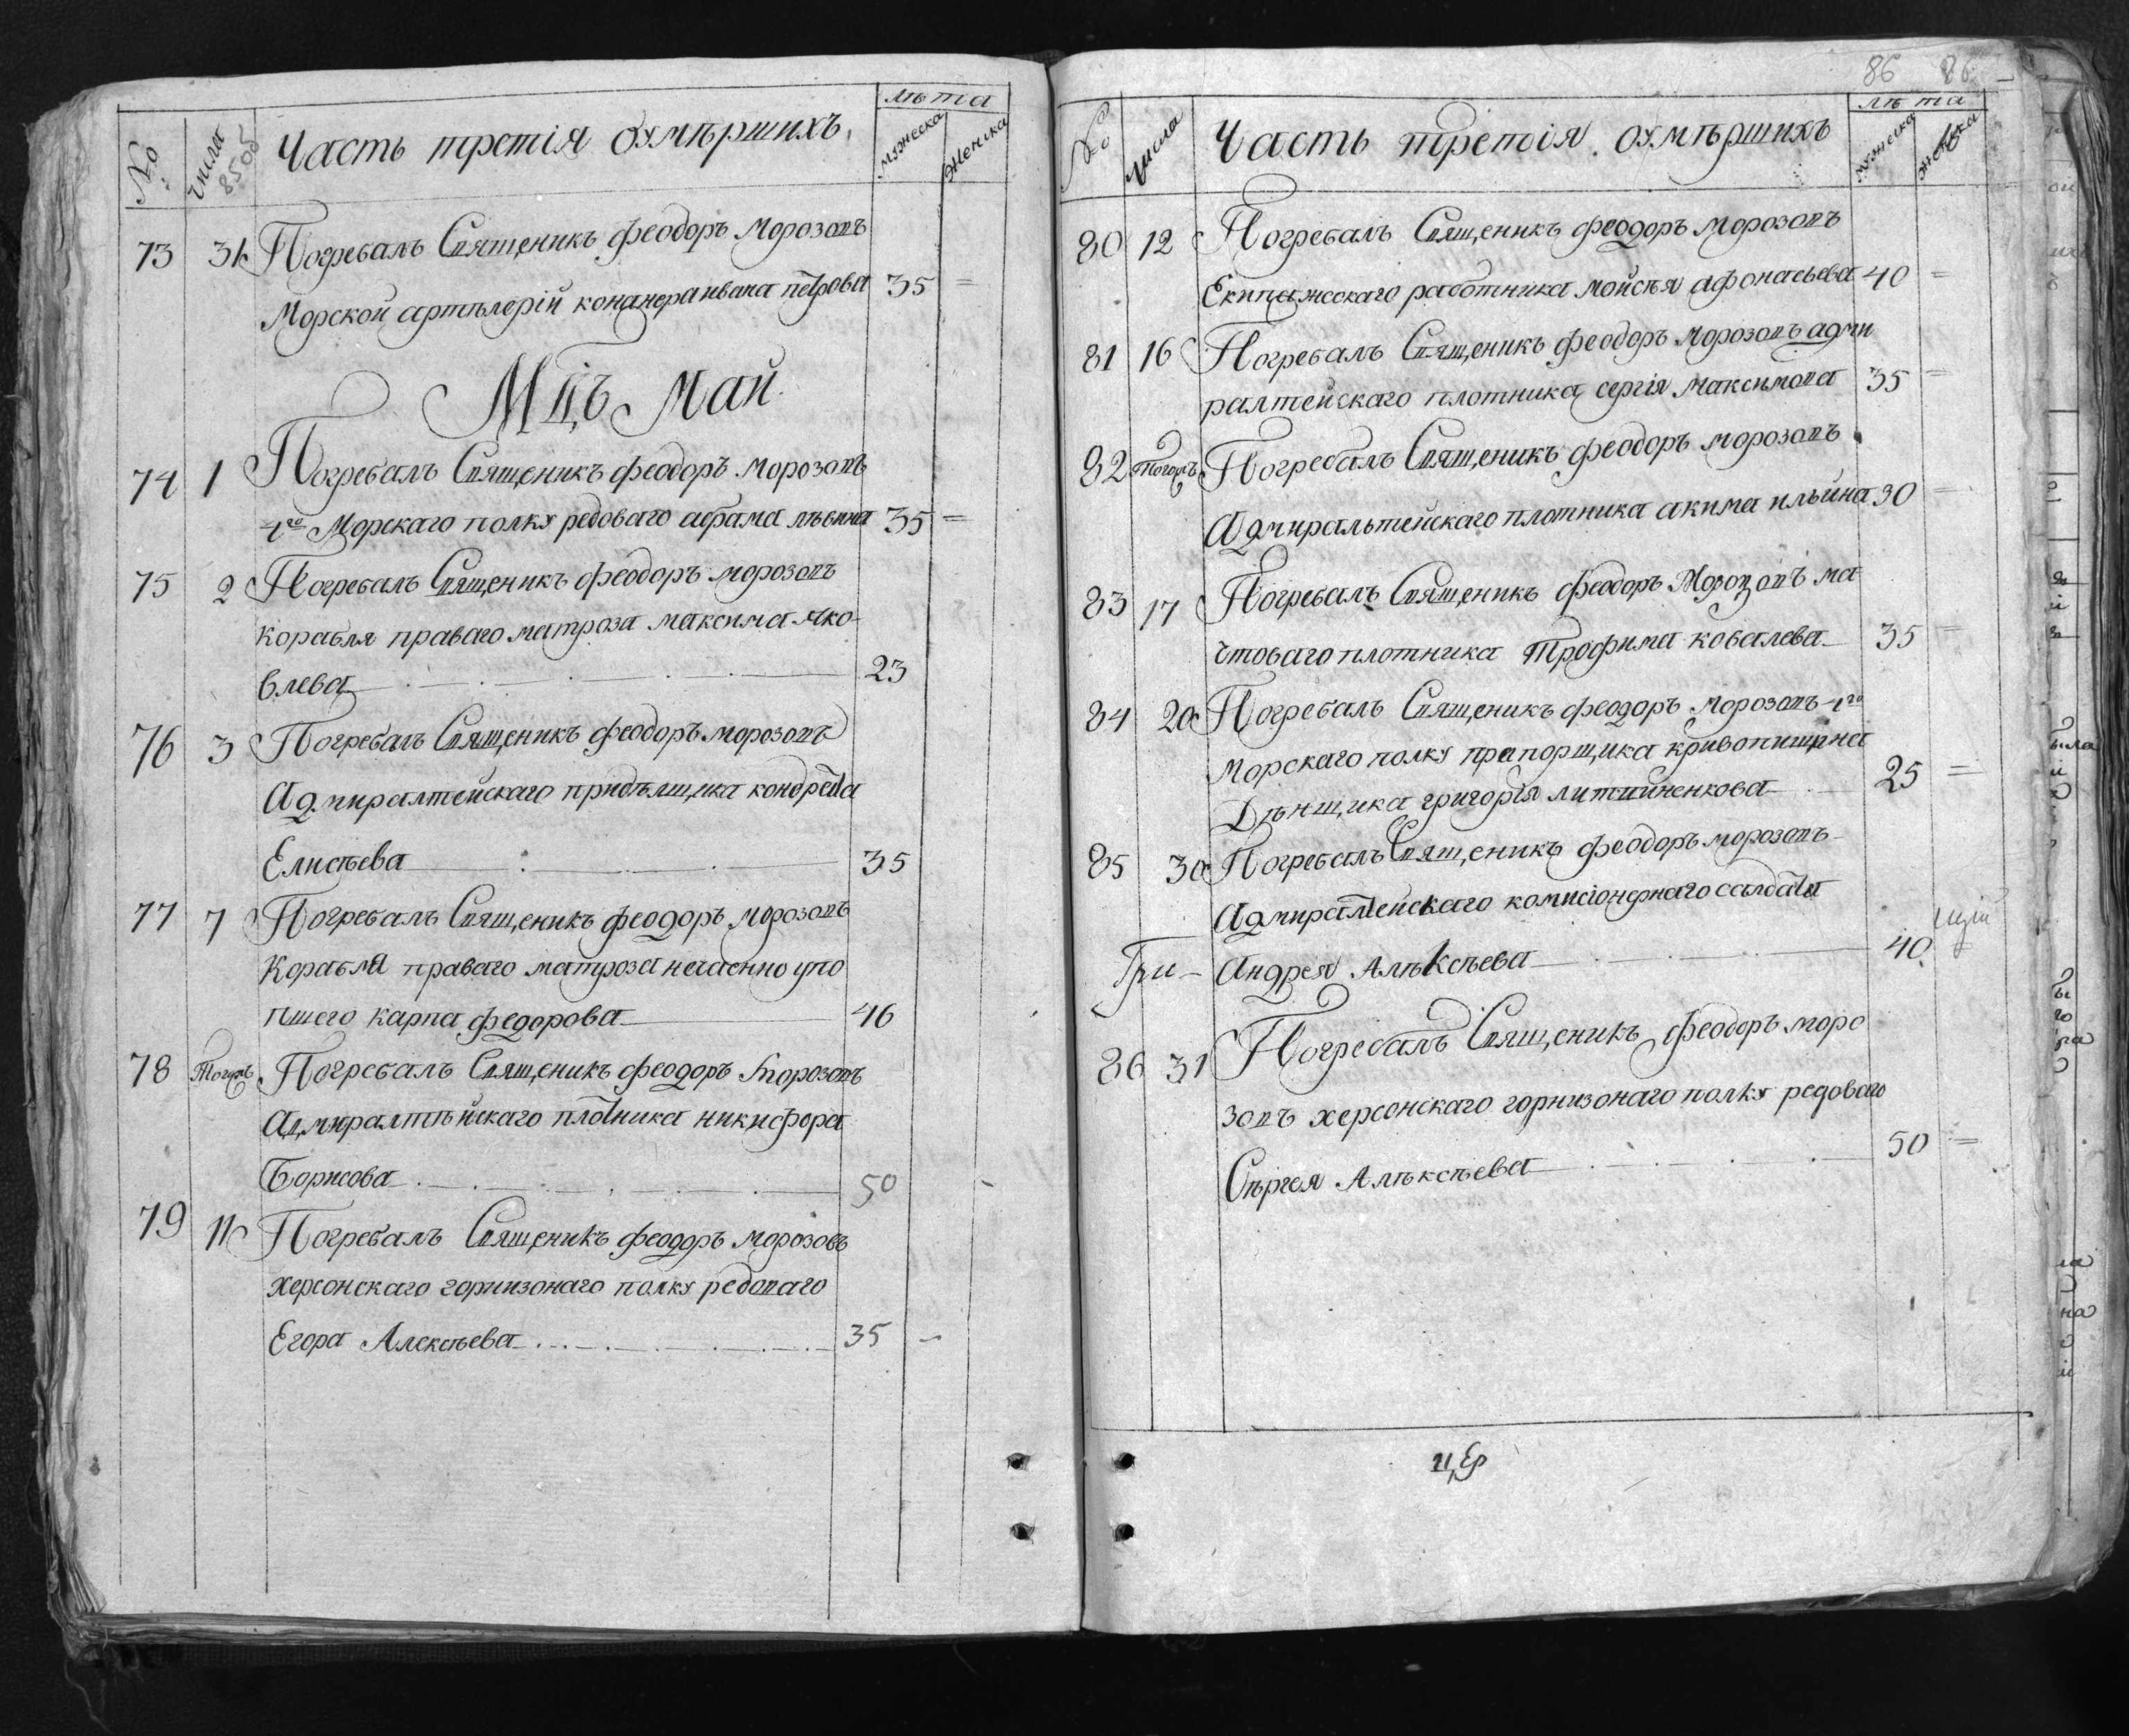 №
числа
8505
Часть третія оумѣршихъ
лѣта
мужеска
женска
73 31 Погребалъ Священикъ феодоръ морозовъ
Морской артилерій конанера ивана петрова 35 =
Мцъ Май
74 1 Погребалъ Священикъ феодоръ морозовъ
4го Морскаго полку редоваго афрама лвеина 35 =
75 2 Погребалъ Священикъ феодоръ морозовъ
корабля праваго матроза максима яко-
влева 23
76 3 Погребалъ Священикъ феодоръ морозовъ
Адмиралтейскаго придѣлщика кондрета
Елисѣева 35
77 7 Погребалъ Священикъ феодоръ морозовъ
Корабля праваго матроза нечаенно упо
пшего карпа федорова 46
78 Тогожъ Погребалъ Священикъ феодоръ морозовъ
Адмиралтѣйскаго плотника никифора
Борисова 50
79 11 Погребалъ Священикъ феодоръ морозовъ
херсонскаго горнизонаго полку редоваго
Егора Алексѣева 35 -
86 86
№
числа
Часть третія оумѣршихъ
лѣта
мужеска
женска
80 12 Погребалъ Священикъ феодоръ морозовъ
Екипажескаго работника мойсѣя афонасьева 40 =
81 16 Погребалъ Священикъ феодоръ морозовъ адми
ралтейскаго плотника сергія максимова 35 =
82 Тогожъ Погребалъ Священикъ феодоръ морозовъ
Адмиральтейскаго плотника акима ильина 30
83 17 Погребалъ Священикъ феодоръ Морозовъ ма
чтоваго плотника трофима ковалева 35 =
84 20 Погребалъ Священикъ феодоръ морозовъ 4го
Морскаго полку прапорщика кривопишина
Дѣнщика григорія литвиненкова 25 =
85 30 Погребалъ Священикъ феодоръ морозовъ
Адмиралтейскаго комисіонернаго салдата
Гри- Андрея Алѣксѣева 40
86 31 Погребалъ Священикъ феодоръ моро
зовъ херсонскаго горнизонаго полку редоваго
Сѣргея Алѣксѣева 50 =
цЕр